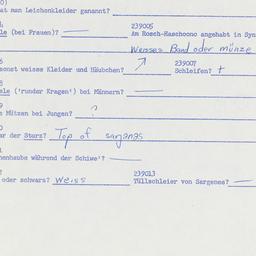 0)
at man Leichenkleider genannt?
239005
le (bei Frauen)? Am Rosch-Haschoono angehabt in Syn
Weisses Band oder münze
6 239007
sonst weisse Kleider und Häubchen? Schleifen? t
8
ele ('runder Kragen') bei Männern?
9
n Mützen bei Jungen? ?
0
ar der Starz? Top of sarganas
1
nenhaube während der Schiwe'?
2 239013
oder schwarz? Weiss Tüllschleier von Sargenes?